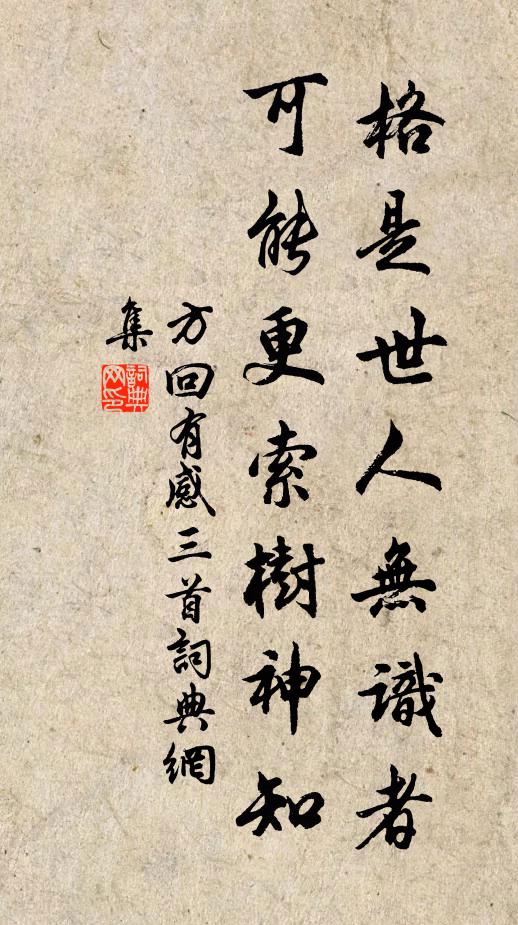 格是世人無識者
可能更索樹神知
方回有感三首詞典網
集
詞典網印